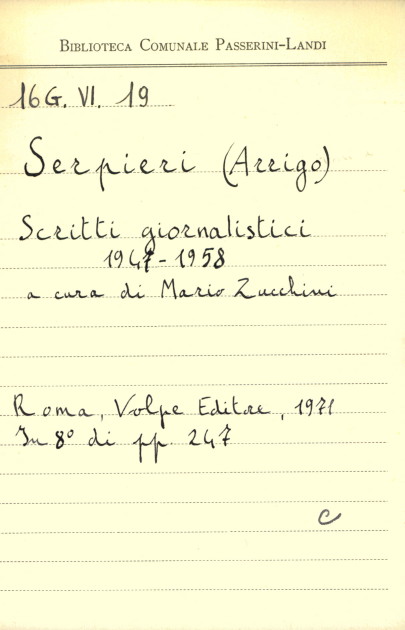 BIBLIOTECA COMUNALE PASSERINI-LANDI
16G. VI. 19
Serpieri (Arrigo)
Scritti giornalistici
1947-1958
a cura di Mario Zucchini
Roma, Volpe Editore, 1971
In 8° di pp. 247
C